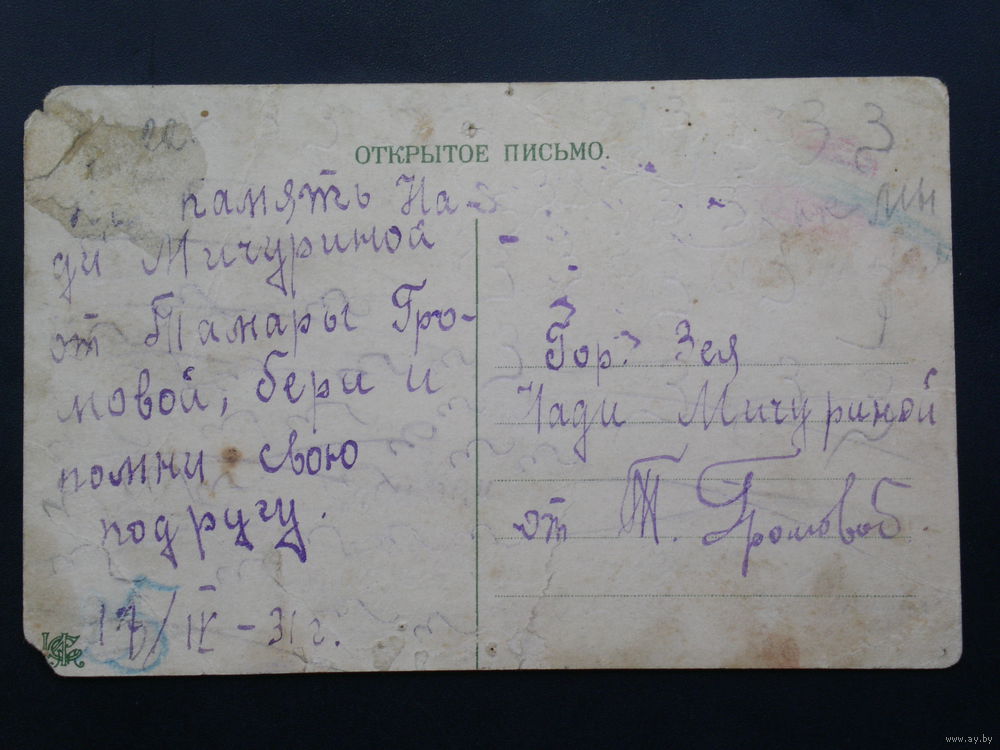 ОТКРЫТОЕ ПИСЬМО.
память На-
ди Мичуриной
от Тамары Гро-
мовой, бери и
помни свою
подругу.
17/IV - 31 г.
Гор. Зея
Нади Мичуриной
от Т. Громовой.
3 3
www.ay.by